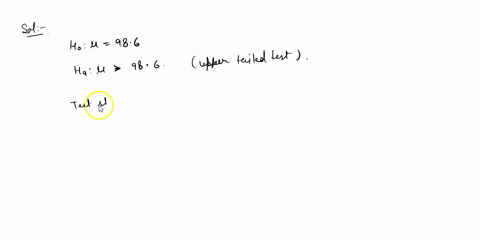 Sol:-
H₀: μ = 98.6
Hₐ: μ > 98.6. (upper tailed test).
Test st